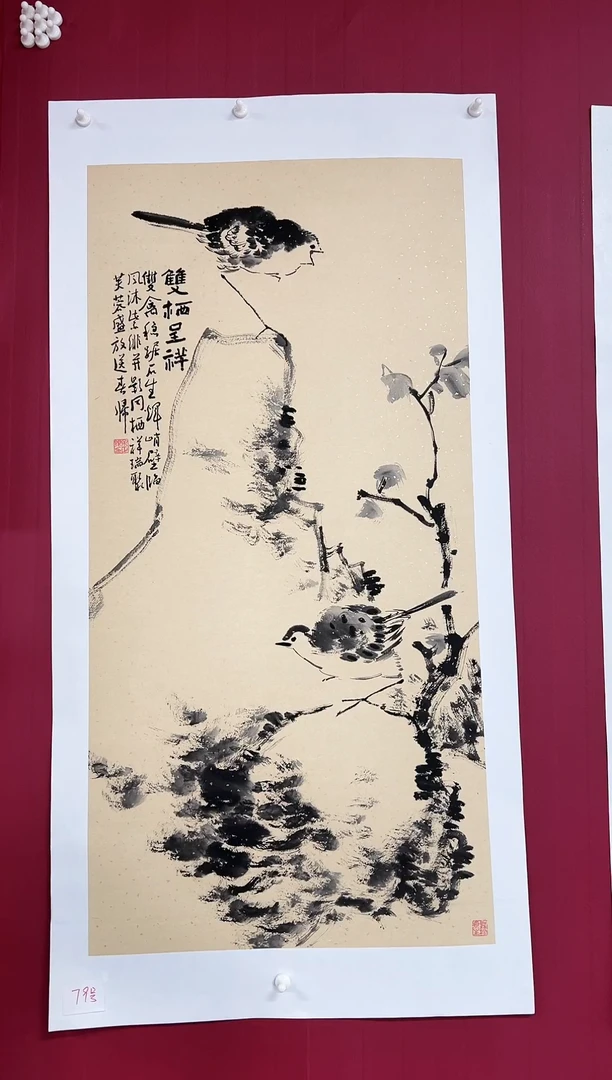 雙栖呈祥
雙禽穩踞石生輝峭壁臨
風沐
並影同栖祥瑞聚
芙蓉盛放送春歸
79号